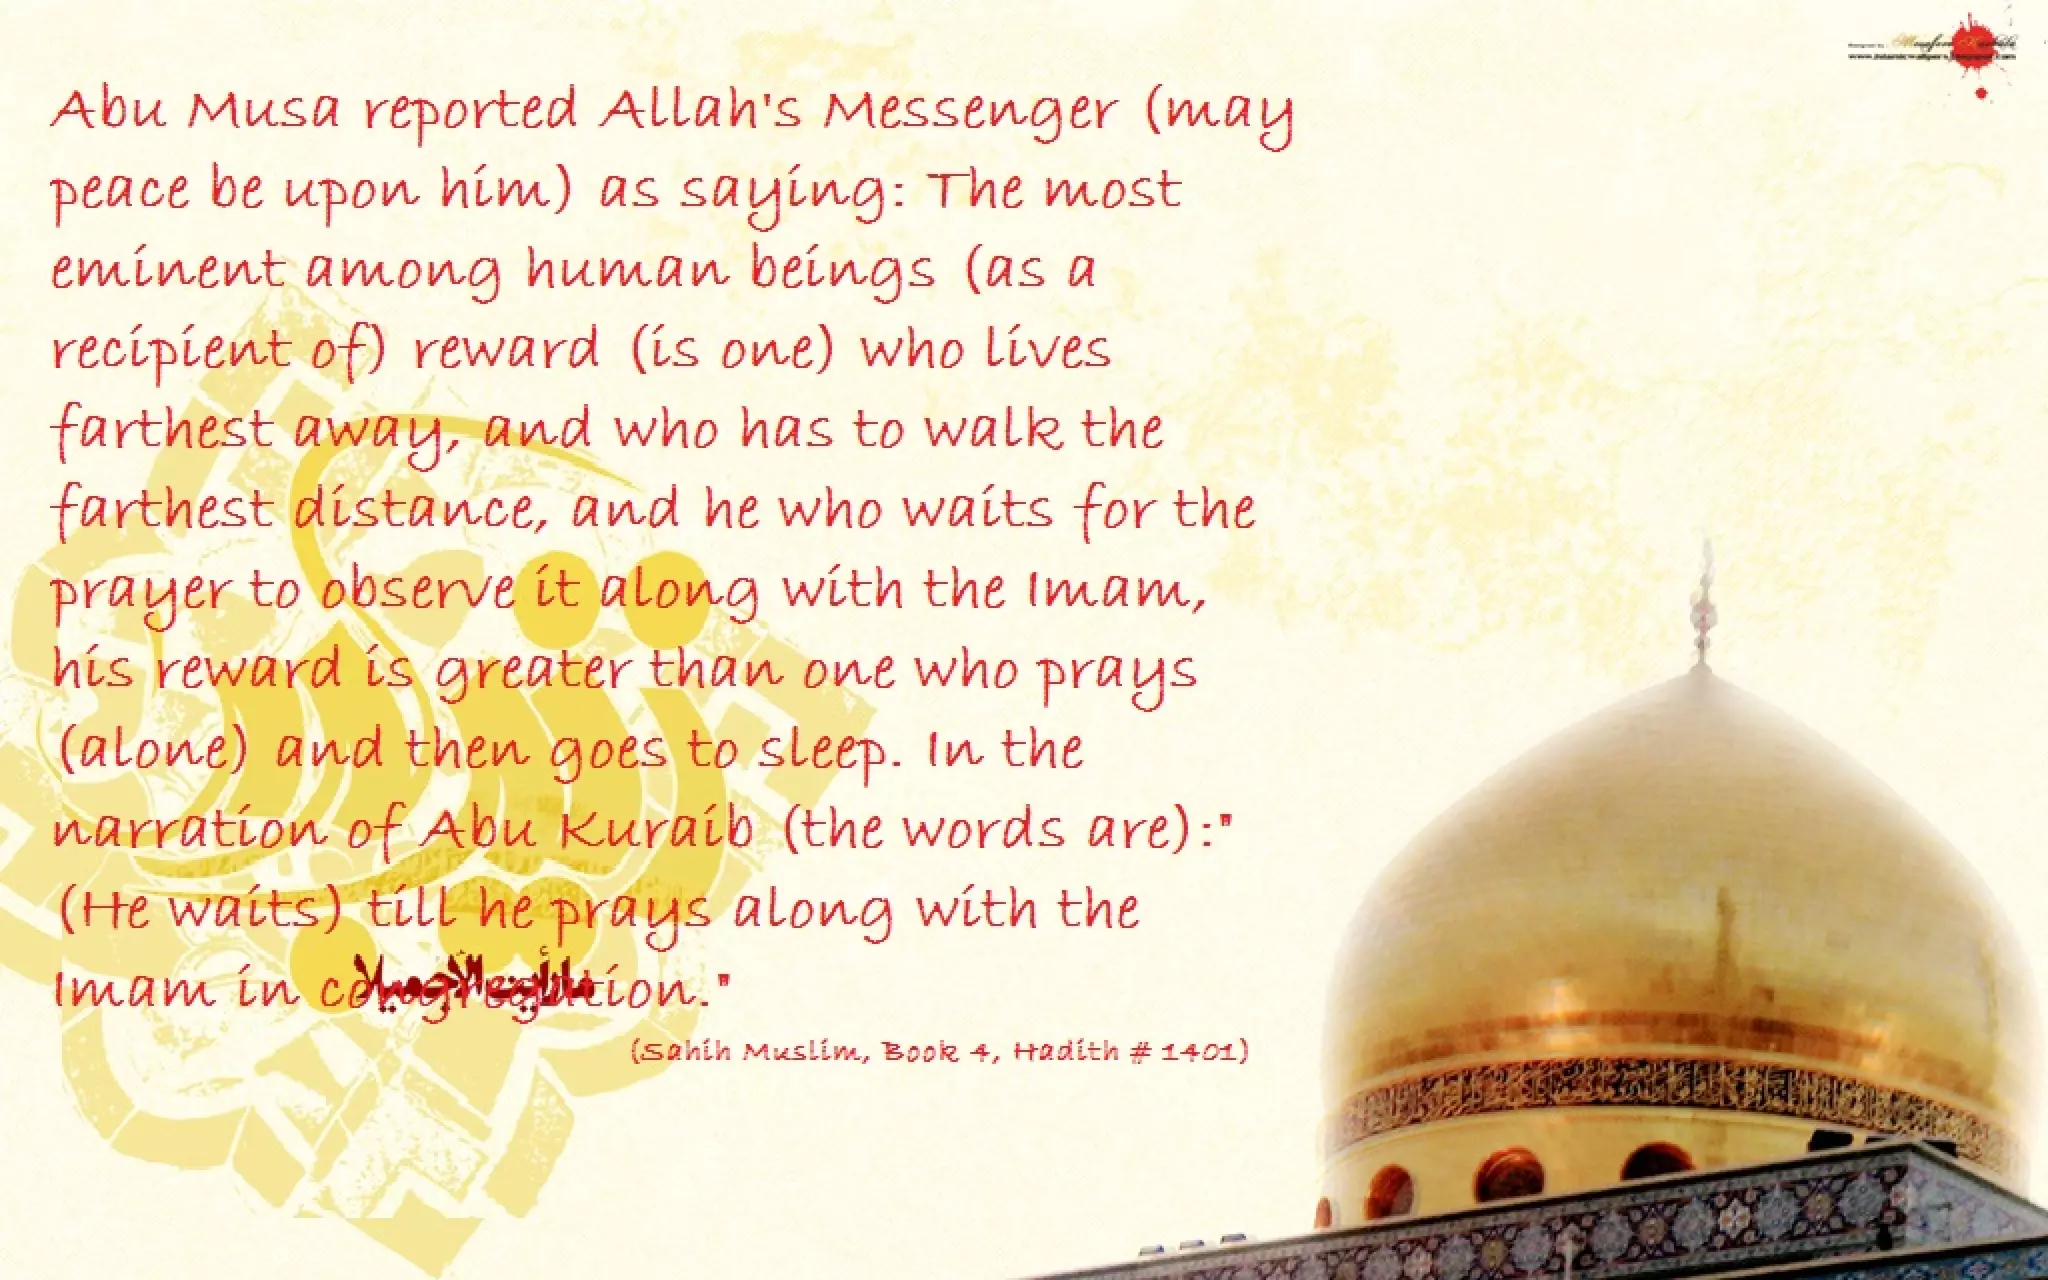 Abu Musa reported Allah's Messenger (may
peace be upon him) as saying: The most
eminent among human beings (as a
recipient of) reward (is one) who lives
farthest away, and who has to walk the
farthest distance, and he who waits for the
prayer to observe it along with the Imam,
his reward is greater than one who prays
(alone) and then goes to sleep. In the
narration of Abu Kuraib (the words are):"
(He waits) till he prays along with the
Imam in congregation."
ما رأيت إلا جميلا
(Sahih Muslim, Book 4, Hadith # 1401)